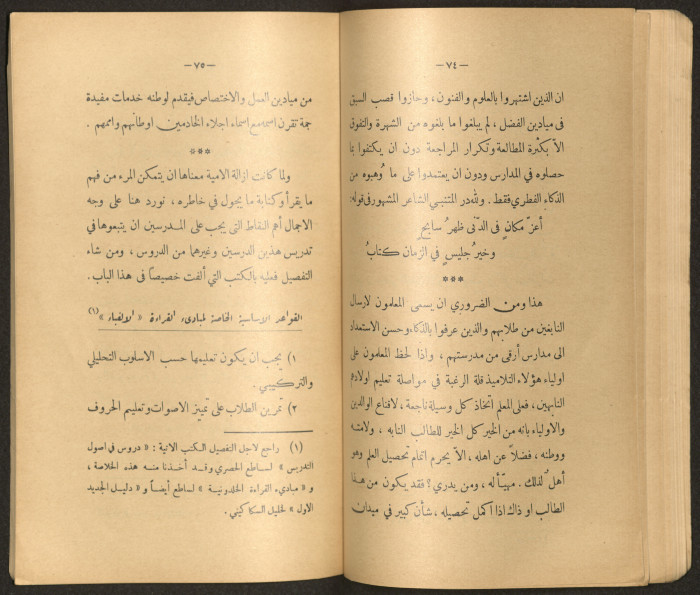 — ٧٤ —
ان الذين اشتهروا بالعلوم والفنون، وحازوا قصب السبق
فى ميادين الفضل، لم يبلغوا ما بلغوه من الشهرة والتفوق
الاّ بكثرة المطالعة وتكرار المراجعة دون ان يكتفوا بما
حصلوه في المدارس ودون ان يعتمدوا على ما وُهبوه من
الذكاء الفطري فقط. ولله در المتنبي الشاعر المشهور فى قوله:
أعزّ مكانٍ فى الدّنى ظهرُ سابحٍ
وخيرُ جليسٍ في الزّمان كتابُ
***
هذا ومن الضروري ان يسمى المعلمون لارسال
النابغين من طلابهم والذين عرفوا بالذكاء وحسن الاستعداد
الى مدارس أرقى من مدرستهم، واذا لحظ المعلمون على
اولياء هؤلاء التلاميذ قلة الرغبة في مواصلة تعليم اولادهم
النابهين، فعلى المعلم اتخاذ كل وسيلة ناجعة، لاقناع الوالدين
والاولياء بانه من الخير كل الخير للطالب النابه، ولامته
ووطنه، فضلاً عن اهله، الاّ يحرم اتمام تحصيل العلم وهو
أهلٌ لذلك. مهيّأ له، ومن يدري؟ فقد يكون من هذا
الطالب او ذاك اذا اكمل تحصيله، شأن كبير في ميدان
— ٧٥ —
من ميادين العمل والاختصاص فيقدم لوطنه خدمات مفيدة
جمة تقرن اسمه مع اسماء اجلاء الخادمين اوطانهم واممهم.
***
ولما كانت ازالة الامية معناها ان يتمكن المرء من فهم
ما يقرأ وكتابة ما يجول في خاطره، نورد هنا على وجه
الاجمال أهم النقاط التى يجب على المدرسين ان يتبعوها في
تدريس هذين الدرسين وغيرهما من الدروس، ومن شاء
التفصيل فعليه بالكتب التي ألفت خصيصاً فى هذا الباب.
القواعد الاساسية الخاصة لمبادىء القراءة «الالفباء» (١)
١) يجب ان يكون تعليمها حسب الاسلوب التحليلي
والتركيبي.
٢) تمرين الطلاب على تمييز الاصوات وتعليم الحروف
(١) راجع لاجل التفصيل الكتب الاتية: «دروس في اصول
التدريس» لساطع الحصري وقد أخذنا منه هذه الخلاصة،
و«مبادىء القراءة الخلدونية» لساطع أيضاً و«دليل الجديد
الاول» لخليل السكاكيني.